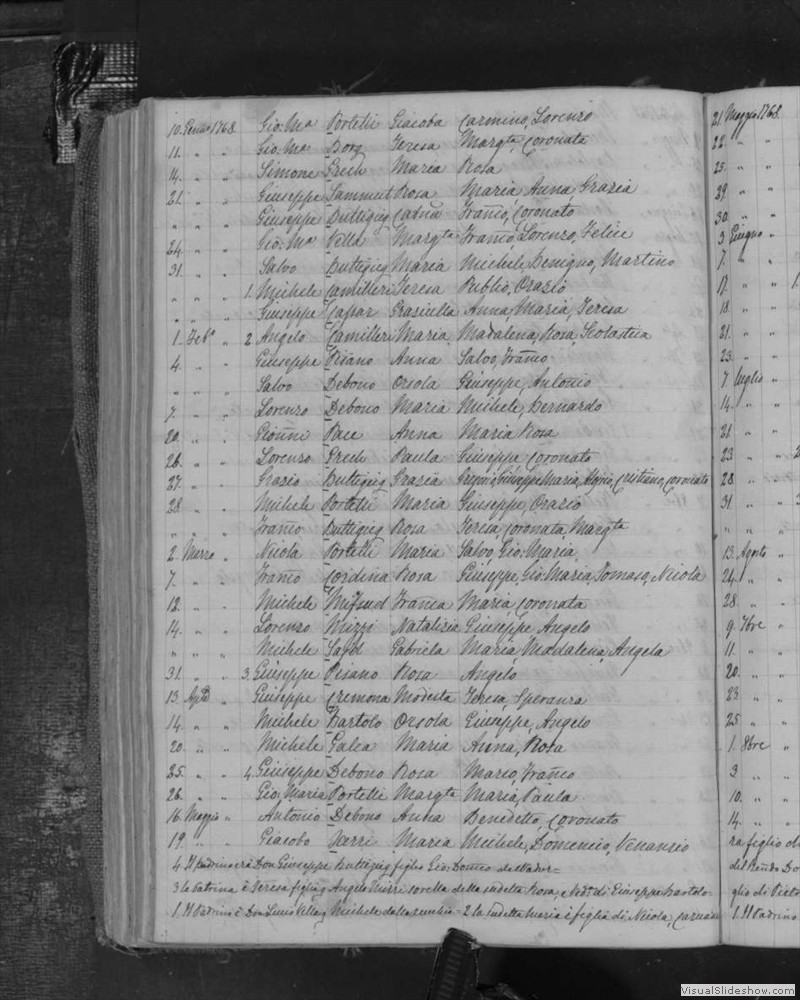 10. Genno 1768. Gio: Ma Portelli Giacoba Carmino, Lorenzo
11. " " Gio: Ma Borg Teresa Margta, Coronata
14. " " Simone Grech Maria Rosa
21. " " Giuseppe Sammut Rosa Maria Anna, Grazia
" " " Giuseppe Buttigieg Catna Franco, Coronato
24. " " Gio: Ma Vella Margta Franco, Lorenzo, Felice
31. " " Salvo Buttigieg Maria Michele Benigno, Martino
" " " 1. Michele Camilleri Teresa Publio, Orazio
" " " Giuseppe Caffar Grasiulla Anna Maria, Teresa
1. Febo " 2. Angelo Camilleri Maria Madalena, Rosa, Scolastica
4. " " Giuseppe Pisano Anna Salvo, Franco
" " " Salvo Debono Orsola Giuseppe, Antonio
7. " " Lorenzo Debono Maria Michele, Bernardo
20. " " Gionni Pace Anna Maria Rosa
26. " " Lorenzo Grech Paula Giuseppe Coronato
27. " " Grazio Buttigieg Grazia Giuseppe Maria, Cristiano, Coronato
28 " " Michele Portelli Maria Giuseppe, Orazio
" " " Franco Buttigieg Rosa Teresa, Coronata, Margta
2. Marzo " Nicola Portelli Maria Salvo, Gio: Maria
7. " " Franco Cordina Rosa Giuseppe, Gio: Maria, Tomaso, Nicola
12. " " Michele Mifsud Franca Maria Coronata
14. " " Lorenzo Mizzi Natalizia Giuseppe, Angelo
" " " Michele Said Gabriela Maria Madalena, Angela
31. " " 3. Giuseppe Pisano Rosa Angelo
13. Aple " Giuseppe Cremona Modesta Teresa Speranza
14. " " Michele Bartolo Orsola Giuseppe, Angelo
20. " " Michele Galea Maria Anna, Rosa
25. " " 4. Giuseppe Debono Rosa Marco, Franco
26. " " Gio: Maria Portelli Margta Maria, Paula
16. Maggio " Antonio Debono Anna Benedetto, Coronato
19. " " Giacobo Xerri Maria Michele, Domenico, Venanzio
4. Il padrino era Don Giuseppe Buttigieg figlio Gio: Domco
3 la Patrina è Teresa figlia Angelo Mizzi sorella della sudetta Rosa, e Vedva di Giuseppe Bartolo
1. Il Padrino è Don Luiis Vella Michele = 2 la sudetta Maria è figlia di Nicola,
21. Maggio 1768.
22. " "
25. " "
29. " "
30. " "
3 Giugno "
7. " "
12. " "
18. " "
21. " "
23. " "
7 Luglio "
14. " "
21 " "
23 " "
28 " "
31 " "
" " "
13. Agosto "
24. " "
28. " "
9. 7bre "
11. " "
20. " "
23. " "
25 " "
1. 8bre "
3 " "
10. " "
14. " "
ra figlio di
del Rendo Do
glio di
1. Il Padrino
VisualSlideshow.com